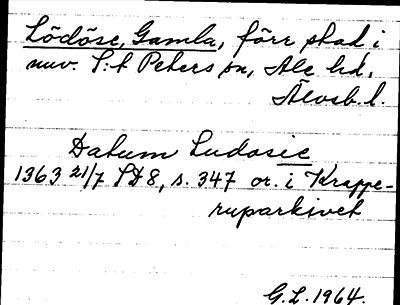 Lödöse, Gamla, förr stad i
nuv. S:t Peters sn, Ale hd,
Älvsb. l.
Datum Ludosie
1363 21/7 SD 8, s. 347 or. i Krappe-
ruparkivet
G.L. 1964.